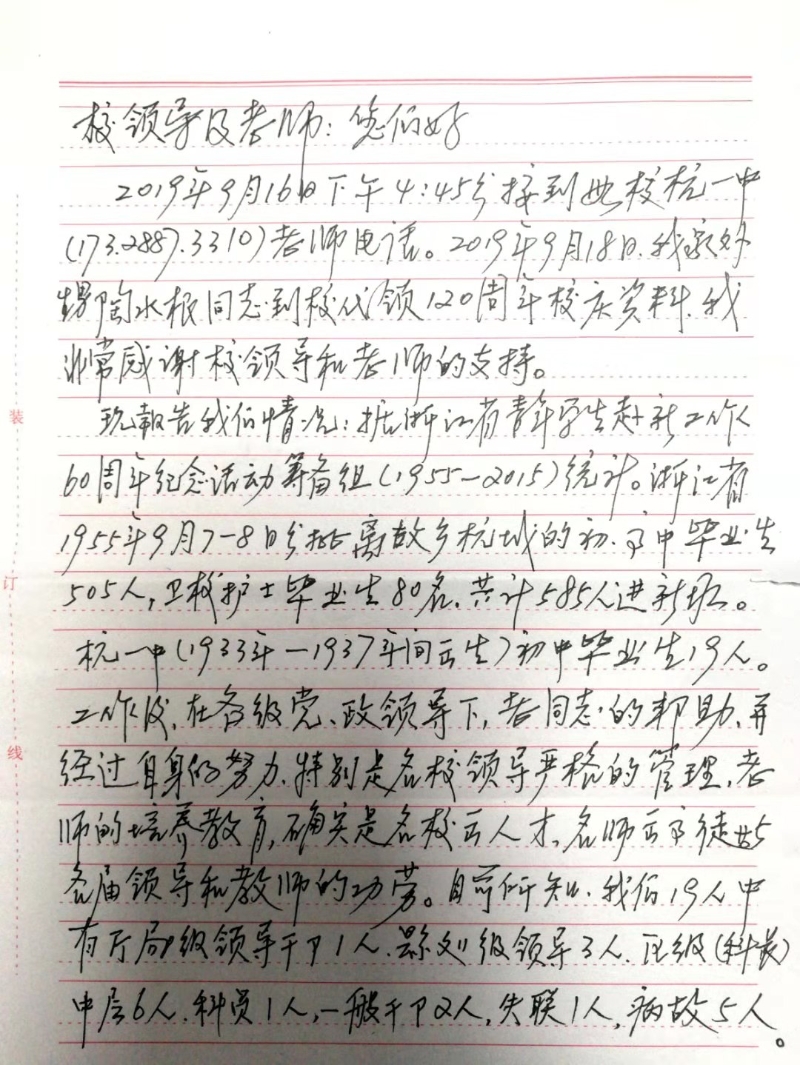 校领导及老师：您们好
2019年9月16日下午4:45分接到母校杭一中
(173.2887.3310)老师电话。2019年9月18日.我家外
甥陶水根同志到校代领120周年校庆资料.我
非常感谢校领导和老师的支持。
现報告我们情况：据浙江省青年学生赴新工作
60周年纪念活动筹备组(1955—2015)统计。浙江省
1955年9月7-8日分批离故乡杭城的初.高中毕业生
505人，卫校护士毕业生80名.共计585人进新疆。
杭一中(1933年—1937年间出生)初中毕业生19人。
工作后.在各级党、政领导下，老同志的帮助.并
经过自身的努力.特别是名校领导严格的管理，老
师的培养教育，确实是名校出人才.名师出高徒
各届领导和教师的功劳。目前所知.我们19人中
有厅局级领导干部1人.县处级领导3人.正级(科长)
中层6人.科员1人，一般干部2人，失联1人，病故5人。
装
订
线